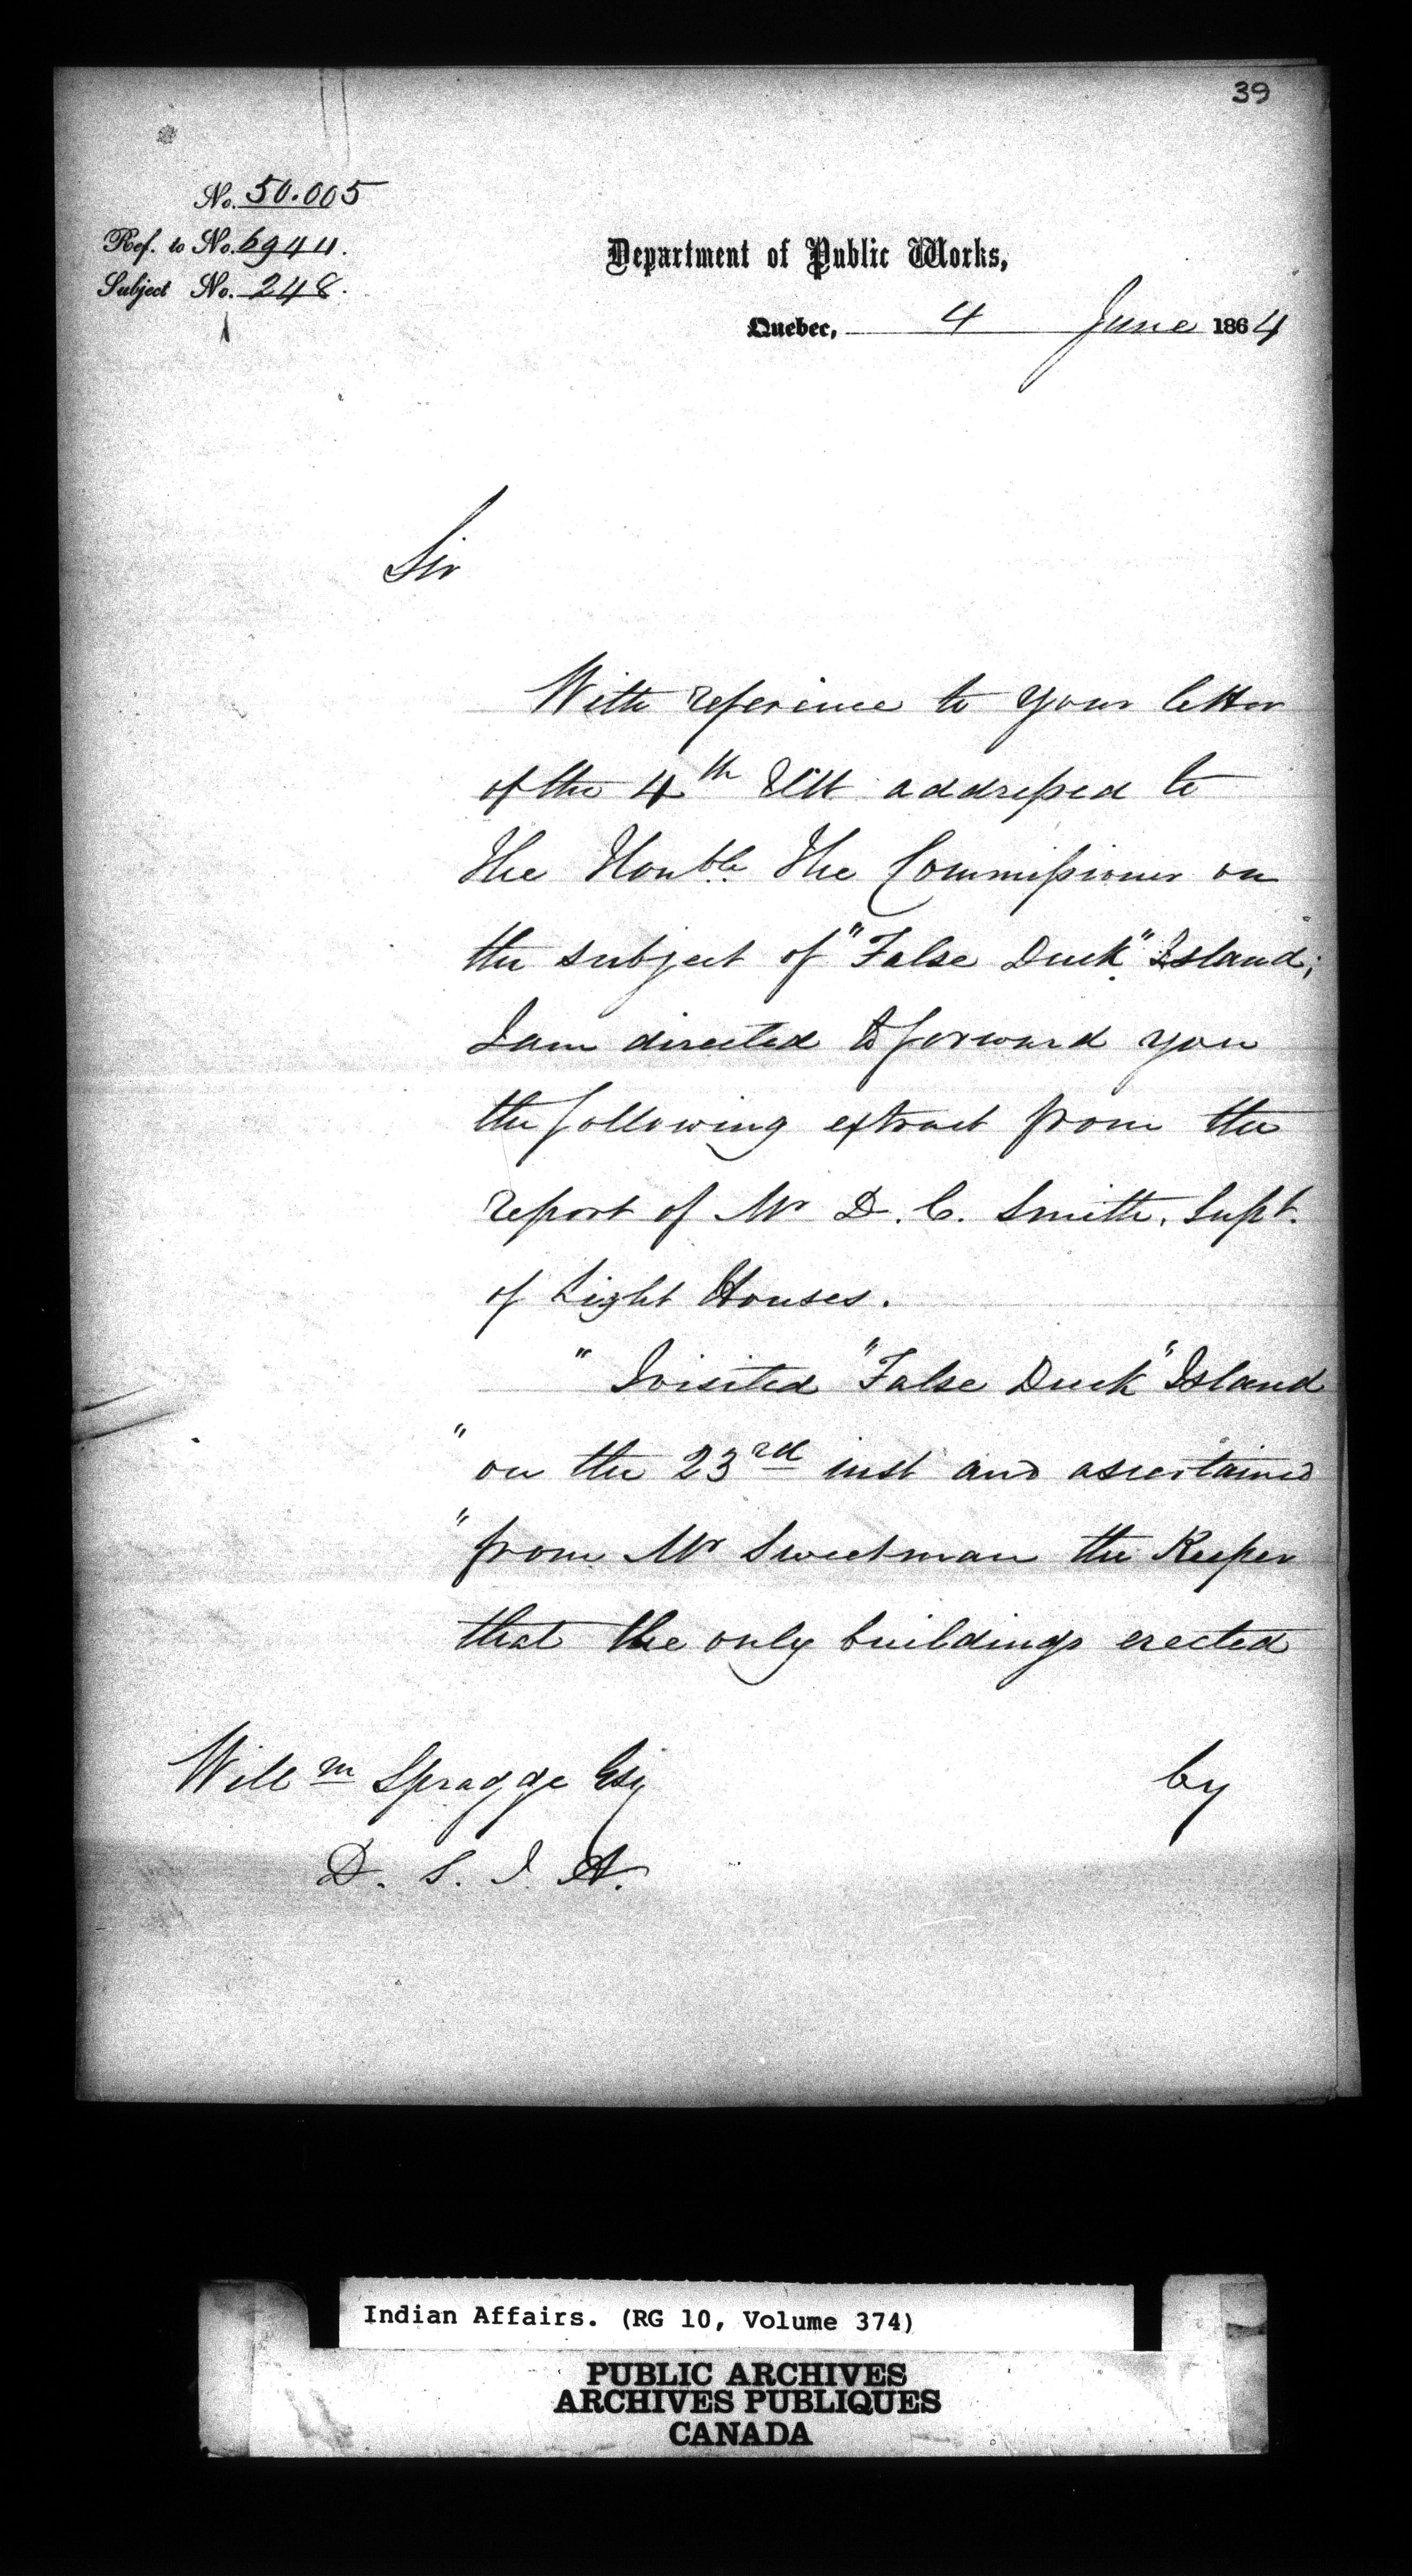 39
No. 50.005
Ref. to No. 69411.
Subject No. 248.
Department of Public Works,
Quebec, 4 June 1864
Sir
With reference to your letter
of the 4th Ult. addressed to
The Honble. The Commissioner on
the subject of "False Duck" Island;
I am directed to forward you
the following extract from the
report of Mr D. C. Smith, Supt.
of Light Houses.
" I visited "False Duck" Island
" on the 23rd inst and ascertained
" from Mr Sweetman the Keeper
that the only buildings erected
by
Willm Spragge Esq
D. S. I. A.
Indian Affairs. (RG 10, Volume 374)
PUBLIC ARCHIVES
ARCHIVES PUBLIQUES
CANADA